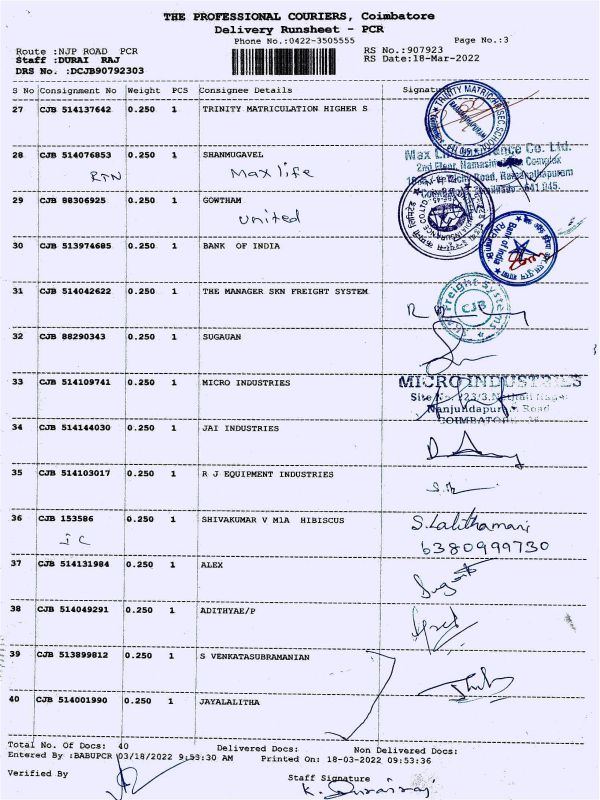 THE PROFESSIONAL COURIERS, Coimbatore
Delivery Runsheet - PCR
Phone No.:0422-3505555
Page No.:3
Route :NJP ROAD PCR
RS No.:907923
Staff :DURAI RAJ
RS Date:18-Mar-2022
DRS No. :DCJB90792303
S No Consignment No Weight PCS Consignee Details Signature
27 CJB 514137642 0.250 1 TRINITY MATRICULATION HIGHER S
28 CJB 514076853 0.250 1 SHANMUGAVEL
RTN Max life
2nd Floor, Complex
Road, Ramanathapuram
29 CJB 88306925 0.250 1 GOWTHAM
united
30 CJB 513974685 0.250 1 BANK OF INDIA
Bank of India
31 CJB 514042622 0.250 1 THE MANAGER SKN FREIGHT SYSTEM
Freight Systems
CJB
32 CJB 88290343 0.250 1 SUGAUAN
33 CJB 514109741 0.250 1 MICRO INDUSTRIES
MICRO INDUSTRIES
Nanjundapuram Road
COIMBATORE
34 CJB 514144030 0.250 1 JAI INDUSTRIES
35 CJB 514103017 0.250 1 R J EQUIPMENT INDUSTRIES
36 CJB 153586 0.250 1 SHIVAKUMAR V M1A HIBISCUS
S. Lalithamani
6380999730
37 CJB 514131984 0.250 1 ALEX
38 CJB 514049291 0.250 1 ADITHYAE/P
39 CJB 513899812 0.250 1 S VENKATASUBRAMANIAN
40 CJB 514001990 0.250 1 JAYALALITHA
Total No. Of Docs: 40 Delivered Docs: Non Delivered Docs:
Entered By :BABUPCR 03/18/2022 9:53:30 AM Printed On: 18-03-2022 09:53:36
Verified By
Staff Signature